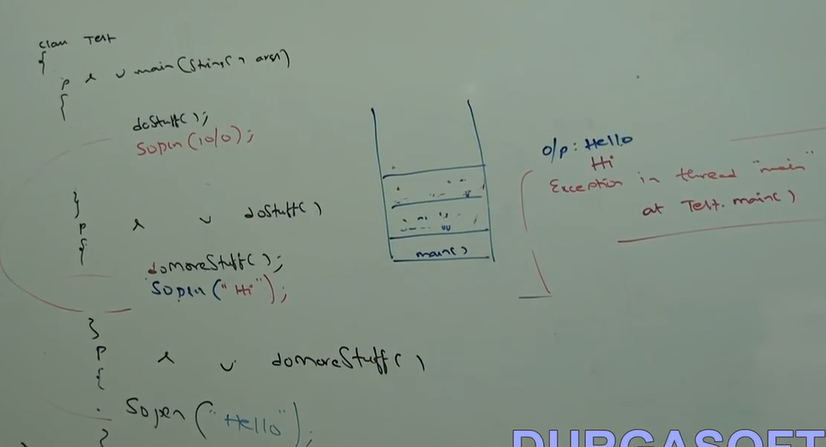 class Test
{
p s v main(String[] args)
{
doStuff();
Sopln(10/0);
}
p s v doStuff()
{
doMoreStuff();
Sopln("Hi");
}
p s v doMoreStuff()
{
Sopln("Hello");
}
main()
o/p: Hello
Hi
Exception in thread "main"
at Test.main()
DURGASOFT